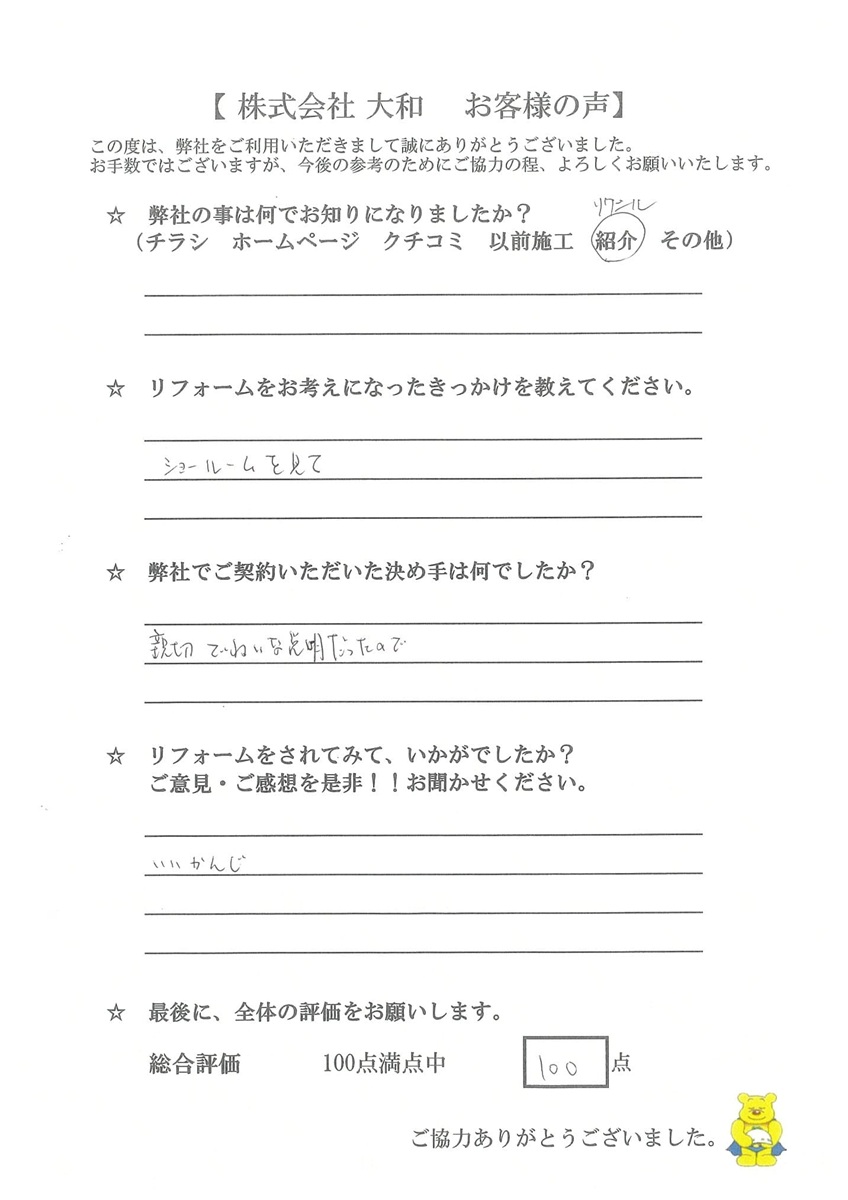 【 株式会社 大和　お客様の声】
この度は、弊社をご利用いただきまして誠にありがとうございました。
お手数ではございますが、今後の参考のためにご協力の程、よろしくお願いいたします。
☆　弊社の事は何でお知りになりましたか？
（チラシ　ホームページ　クチコミ　以前施工　紹介　その他）
☆　リフォームをお考えになったきっかけを教えてください。
ショールームを見て
☆　弊社でご契約いただいた決め手は何でしたか？
親切 でいねいな説明だったので
☆　リフォームをされてみて、いかがでしたか？
ご意見・ご感想を是非！！お聞かせください。
いいかんじ
☆　最後に、全体の評価をお願いします。
総合評価　100点満点中　100 点
ご協力ありがとうございました。